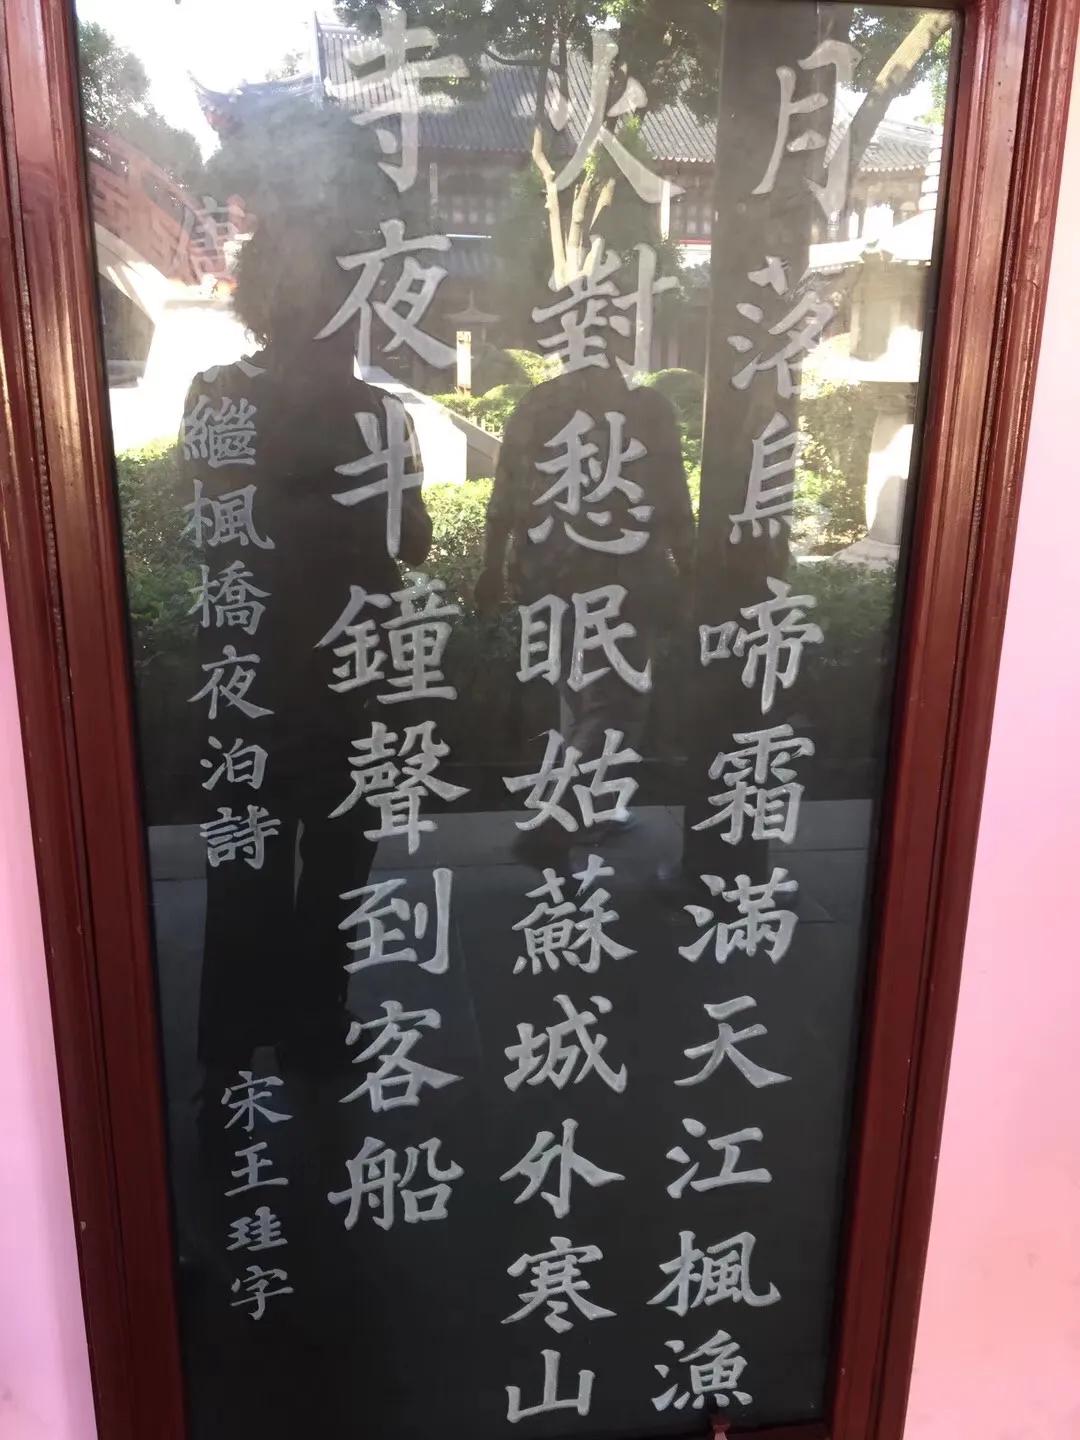 月落烏啼霜滿天江楓漁
火對愁眠姑蘇城外寒山
寺夜半鐘聲到客船
唐繼楓橋夜泊詩 宋王珪字